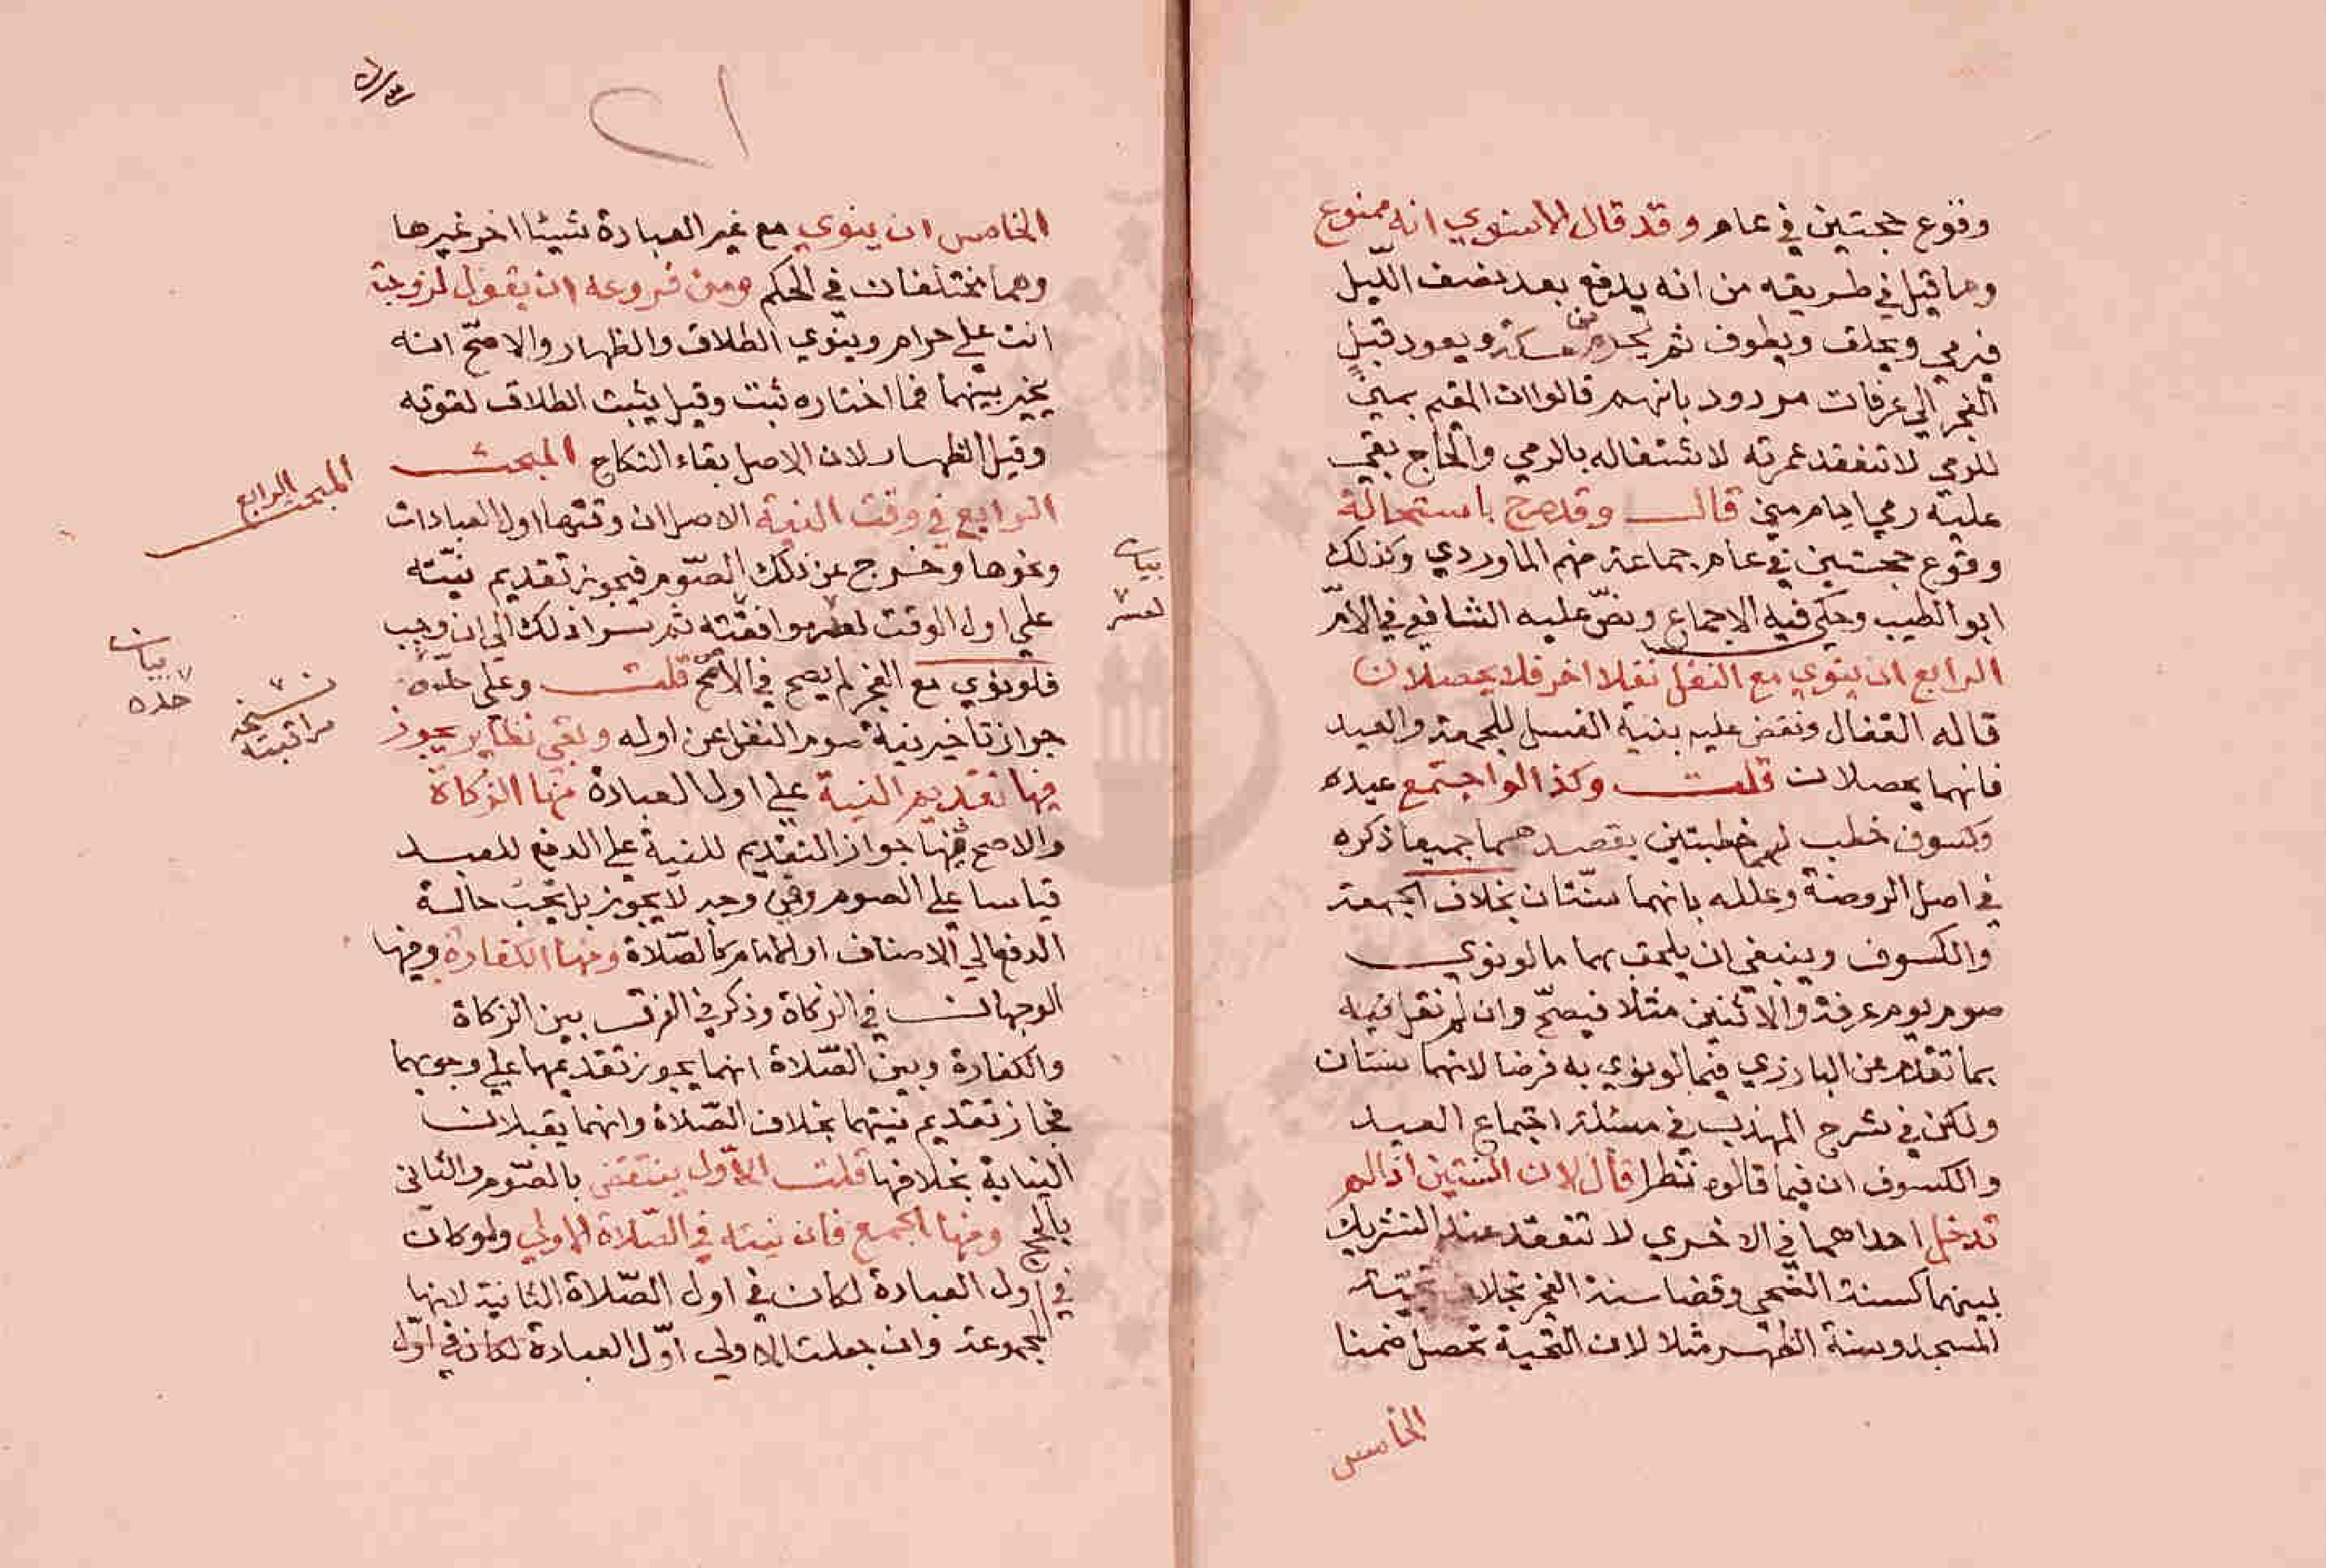 وقوع حجتين في عام وقد قال الاسنوي انه ممنوع
وما قيل في طريقه من انه يدفع بعد نصف الليل
فيرمي ويحلق ويطوف ثم يحرم من مكة ويعود قبل
الفجر الي عرفات مردود بانهم قالوا ان المقيم بمني
للرمي لا تنعقد عمرته لاشتغاله بالرمي والحاج بقي
عليه رمي ايام مني قال وقد صرح باستحالة
وقوع حجتين في عام جماعة منهم الماوردي وكذلك
ابو الطيب وحكي فيه الاجماع ونص عليه الشافعي في الام
الرابع ان ينوي مع النفل نفلا اخر فلا يحصلان
قاله القفال ونقض عليه بنية الغسل للجمعة والعيد
فانهما يحصلان قلت وكذا لو اجتمع عيد
وكسوف خطب لهم خطبتين بقصدهما جميعا ذكره
في اصل الروضة وعلله بانهما سنتان بخلاف الجمعة
والكسوف وينبغي ان يلحق بهما ما لو نوي
صوم يوم عرفة والاثنين مثلا فيصح وان لم نقل فيه
بما تقدم عن البارزي فيما لو نوي به فرضا لانهما سنتان
ولكن في شرح المهذب في مسئلة اجتماع العيد
والكسوف ان فيما قالوه نظرا قال لان السنتين اذا لم
تدخل احداهما في الاخري لا تنعقد عند التشريك
بينهما كسنة الضحي وقضا سنة الفجر بخلاف تحية
المسجد وسنة الظهر مثلا لان التحية تحصل ضمنا
الخامس
٢١
الخامس ان ينوي مع غير العبادة شيئا اخر غيرها
وهما مختلفان في الحكم ومن فروعه ان يقول لزوجته
انت علي حرام وينوي الطلاق والظهار والاصح انه
يخير بينهما فما اختاره ثبت وقيل يثبت الطلاق لقوته
وقيل الظهار لان الاصل بقاء النكاح المبحث
الرابع في وقت النية الاصل ان وقتها اول العبادات
ونحوها وخرج عن ذلك الصوم فيجوز تقديم نيته
علي اول الوقت لعسر موافقته ثم سرا ذلك الي ان وجب
فلو نوي مع الفجر لم يصح في الاصح قلت وعلى حده
جواز تاخير نية صوم النفل عن اوله وبقي نظاير يجوز
فيها تقديم النية علي اول العبادة منها الزكاة
والاصح فيها جواز التقديم للنية علي الدفع للعسر
قياسا علي الصوم وفي وجه لا يجوز بل يجب حالة
الدفع الي الاصناف او الامام كالصلاة ومنها الكفارة وفيها
الوجهان في الزكاة وذكر في الفرق بين الزكاة
والكفارة وبين الصلاة انهما يجوز تقديمهما علي وجوبهما
فجاز تقديم نيتهما بخلاف الصلاة وانهما يقبلان
النيابة بخلافها قلت الاول ينتقض بالصوم والثاني
بالحج ومنها الجمع فان نيته في الصلاة الاولي ولو كان
في اول العبادة لكان في اول الصلاة الثانية لانها
المجموعة وان جعلت الاولي اول العبادة لكان في اول
المبحث الرابع
بيان
لعسر
بيان
حده
نسخة
مراقبته